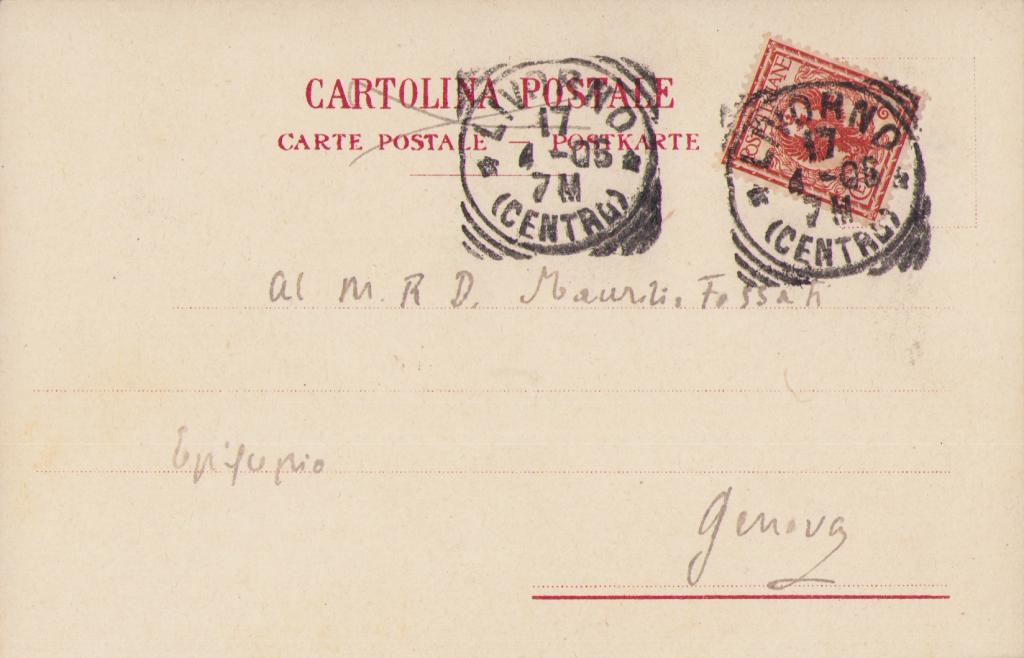 CARTOLINA POSTALE
CARTE POSTALE — POSTKARTE
LIVORNO
17
4 -05
7 M
(CENTRO)
POSTE ITALIANE
LIVORNO
17
4 -05
7 M
(CENTRO)
Al M. R D. Maurizio Fossati
Episcopio
Genova